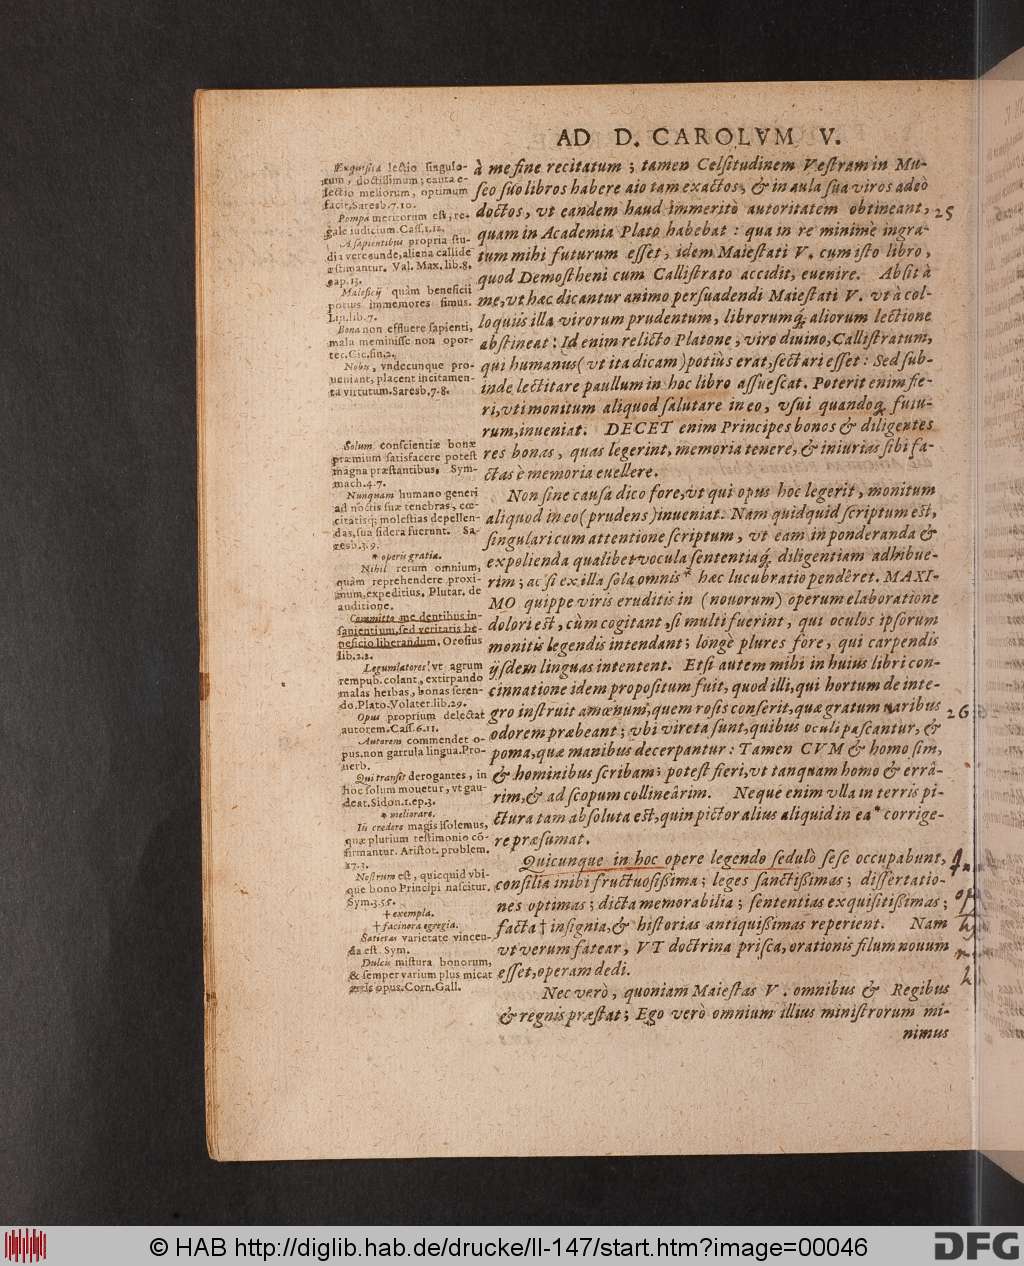 AD D. CAROLVM V.
Exquisita lectio singulo-
rum, doctissimum; cauta e-
lectio meliorum, optimum
facit, Saresb. 7. 10.
Pompa meritorum est, re-
gale iudicium. Cass. 1. 12.
A sapientibus propria stu-
dia verecunde, aliena callide
æstimantur. Val. Max. lib. 8.
cap. 13.
Maleficij quàm beneficii
potius immemores simus.
Liu. lib. 7.
Bona non effluere sapienti,
mala meminisse non opor-
tet. Cic. fin. 2.
Nobis, vndecunque pro-
ueniant, placent incitamen-
ta virtutum. Saresb. 7. 8.
Solum conscientiæ bonæ
præmium satisfacere potest
magna præstantibus. Sym-
mach. 4. 7.
Nunquam humano generi
ad noctis suæ tenebras, cœ-
citatisq; molestias depellen-
das, sua sidera fuerunt. Sa-
resb. 3. 9.
* operis gratia.
Nihil rerum omnium,
quàm reprehendere proxi-
mum, expeditius. Plutar. de
auditione.
Committo me dentibus in-
sanientium, sed veritatis be-
neficio liberandum. Orosius
lib. 2. 2.
Legumlatores! vt agrum
rempub. colant, extirpando
malas herbas, bonas seren-
do. Plato. Volater. lib. 29.
Opus proprium delectat
autorem. Cass. 6. 11.
Autorem commendet o-
pus. non garrula lingua. Pro-
uerb.
Qui transit derogantes, in
hoc solum mouetur, vt gau-
deat. Sidon. 1. ep. 3.
* meliorare.
In credere magis solemus,
quæ plurium testimonio cō-
firmantur. Aristot. problem.
17. 3.
Nostrum est, quicquid vbi-
que bono Principi nascitur.
Sym. 3. 55.
† exempla.
† facinora egregia.
Satietas varietate vincen-
da est. Sym.
Dulcis mistura bonorum,
& semper varium plus micat
artis opus. Corn. Gall.
à me sine recitatum; tamen Celsitudinem Vestram in Mu-
seo suo libros habere aio tam exactos, & in aula sua viros adeò
doctos, vt eandem haud immeritò autoritatem obtineant, 25
quam in Academia Plato habebat: qua in re minimè ingra-
tum mihi futurum esset, idem Maiestati V. cum isto libro,
quod Demostheni cum Callistrato accidit, euenire. Absit à
me, vt hac dicantur animo persuadendi Maiestati V. vt à col-
loquiis illa virorum prudentum, librorumq́; aliorum lectione
abstineat: Id enim relicto Platone, viro diuino, Callistratum,
qui humanus (vt ita dicam) potiùs erat, sectari esset: Sed sub-
inde lectitare paullum in hoc libro assuescat. Poterit enim fie-
ri, vti monitum aliquod salutare in eo, vsui quandoq; futu-
rum, inueniat. DECET enim Principes bonos & diligentes
res bonas, quas legerint, memoria tenere, & iniurias sibi fa-
ctas è memoria euellere.
Non sine causa dico fore, vt qui opus hoc legerit, monitum
aliquod in eo (prudens) inueniat. Nam quidquid scriptum est,
singulari cum attentione scriptum, vt eam in ponderanda &
expolienda qualibet vocula sententiaq́; diligentiam adhibue-
rim; ac si ex illa sola omnis * hæc lucubratio pendêret. MAXI-
MO quippe viris eruditis in (nouorum) operum elaboratione
dolori est, cùm cogitant, si multi fuerint, qui oculos ipsorum
monitis legendis intendant; longè plures fore, qui carpendis
ijsdem linguas intentent. Etsi autem mihi in huius libri con-
cinnatione idem propositum fuit, quod illi, qui hortum de inte-
gro instruit amœnum, quem rosis conserit, quæ gratum naribus 26
odorem præbeant; vbi vireta sunt, quibus oculi pascantur, &
poma, quæ manibus decerpantur: Tamen CVM & homo sim,
& hominibus scribam; potest fieri, vt tanquam homo & errâ-
rim, & ad scopum collineârim. Neque enim vlla in terris pi-
ctura tam absoluta est, quin pictor alius aliquid in ea * corrige-
re præsumat.
Quicunque in hoc opere legendo sedulò sese occupabunt,
consilia inibi fructuosissima; leges sanctissimas; dissertatio-
nes optimas; dicta memorabilia; sententias exquisitissimas;
facta † insignia, & historias antiquissimas reperient. Nam
vt verum fatear, VT doctrina prisca, orationis filum nouum
esset, operam dedi.
Nec verò, quoniam Maiestas V. omnibus & Regibus
& regnis præstat; Ego verò omnium illius ministrorum mi-
nimus
© HAB http://diglib.hab.de/drucke/ll-147/start.htm?image=00046
DFG